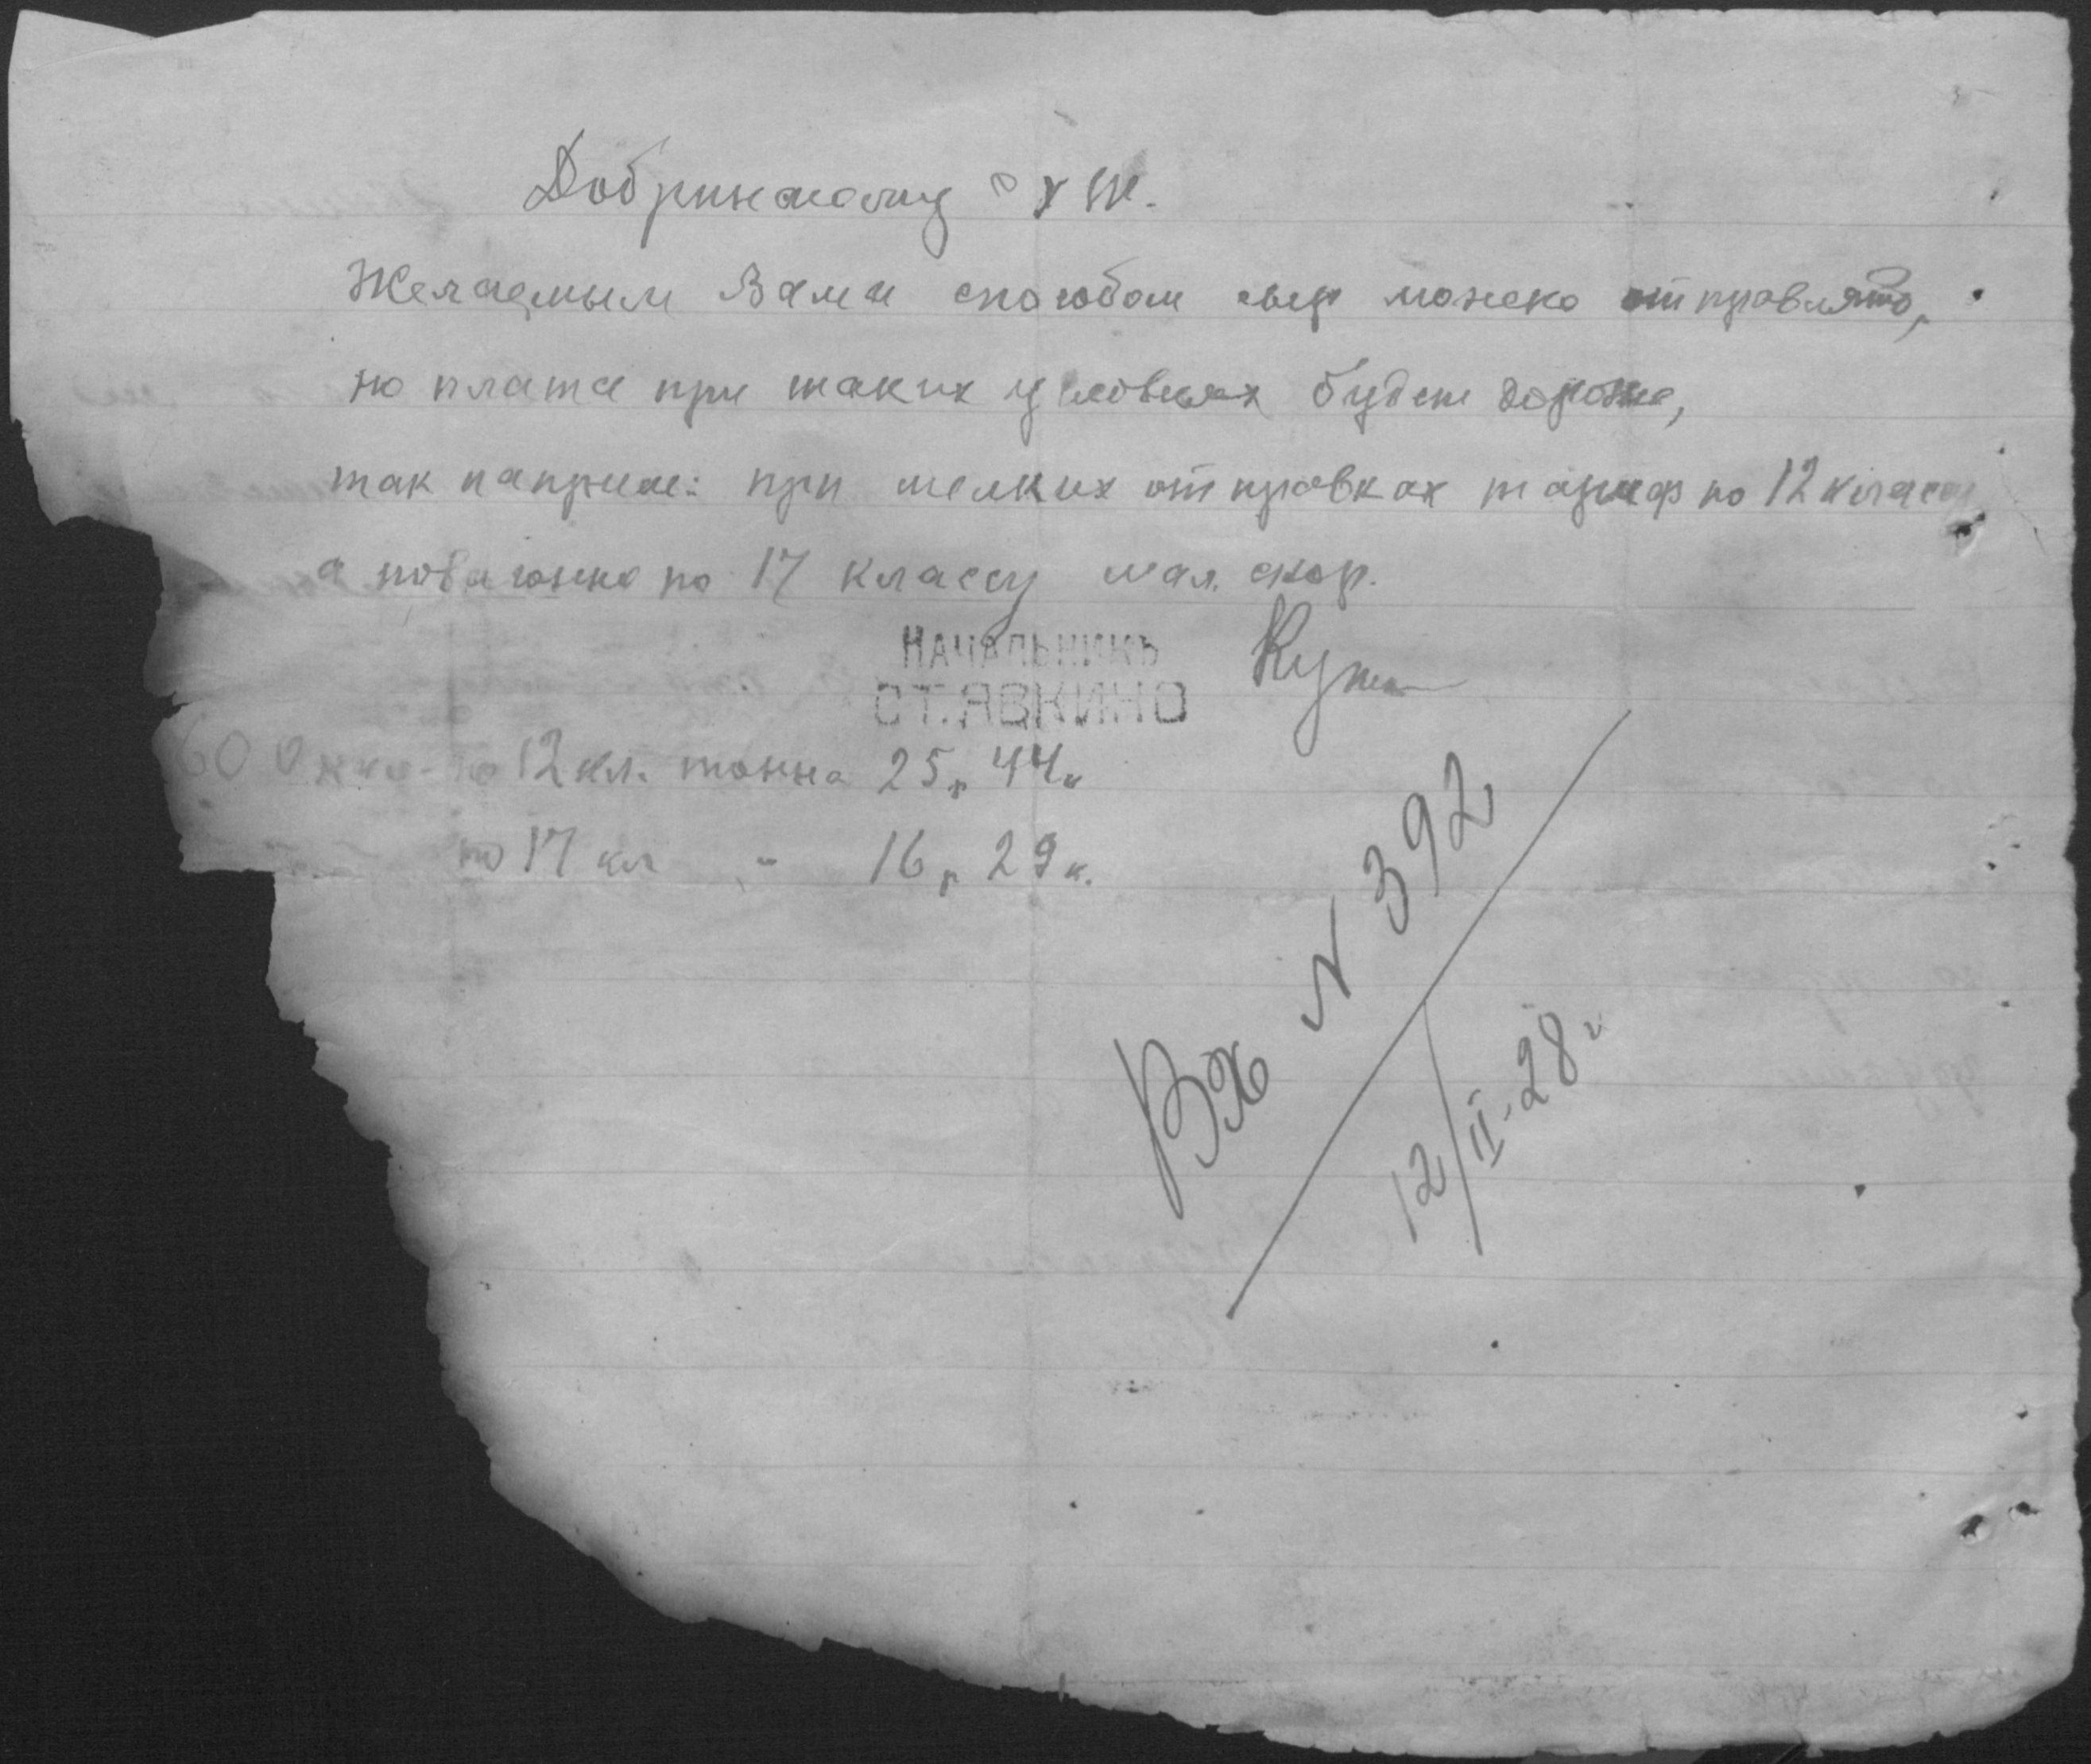 Добринскому с х Ш.
Желаемым Вами способом сыр можно отправлять,
но плата при таких условиях будет дороже,
так наприм: при мелких отправках тариф по 12 классу
а повагонно по 17 классу мал. скор.
НАЧАЛЬНИКЪ
СТ. ЯВКИНО
по 12 кл. тонна 25 р 44 к
по 17 кл " 16 р 29 к.
Вх N 392
12/II-28 г